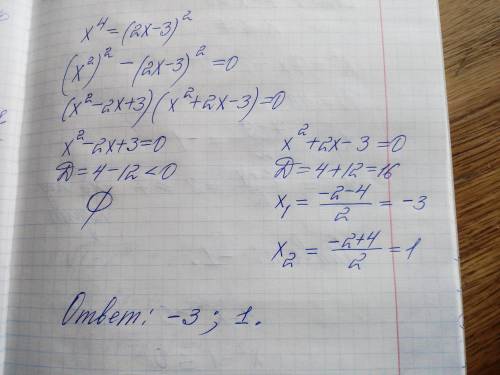 x⁴ = (2x-3)²
(x²)² - (2x-3)² = 0
(x²-2x+3)(x²+2x-3)=0
x²-2x+3=0
D=4-12<0
∅
x²+2x-3=0
D=4+12=16
x₁ = (-2-4)/2 = -3
x₂ = (-2+4)/2 = 1
Ответ: -3; 1.